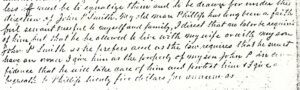 less will be to equalize them and to be drawn for under the
direction of John P Smith. My old man Phillip has long been a faith-
ful servant trusted to myself and family, I desire that no labor be required
of him, but that he be allowed to live with my wife or with my son
John P Smith as he prefers and as the law requires that he must
have an owner I give him as the property of my son John P Smith
that he will take care of him and protect him & I give
Phillip twenty five Dollars per annum as